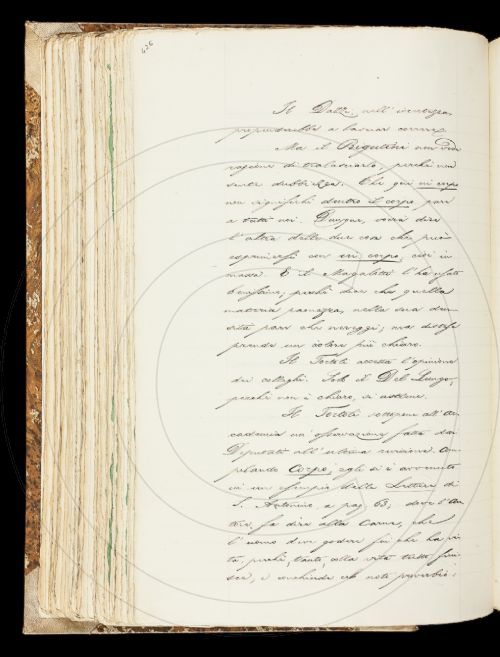 636
Il Dalzi, nell'incertezza,
propenderebbe a lasciar correre.
Ma il Rigutini non vede
ragione di tralasciarlo, perchè non
sente dubbiezza. Che qui in corpo
non significhi dentro il corpo pare
a tutti noi. Dunque, vorrà dire
l'altra delle due cose che può
esprimersi con in corpo, cioè in
massa. E il Magalotti l'ha usato
benissimo, perchè dice che quella
materia paonazza, nella sua
pare che nereggi; ma
prende un colore più chiaro.
Il Tortoli accetta l'opinione
dei colleghi. Solo il Del Lungo,
perchè non è chiaro, si astiene.
Il Tortoli sottopone all'Ac-
cademia un'osservazione fatta dai
Deputati all'ultima revisione. Com-
pilando Corpo, egli si è avvenuto
in un esempio delle Lettere di
S. Antonino, a pag. 63, dove l'Au-
tore fa dire alla Carne, che
l'uomo deve godere fin che ha vi-
ta, perchè, tanto, colla vita tutto fini-
sce, e conchiude col noto proverbio: